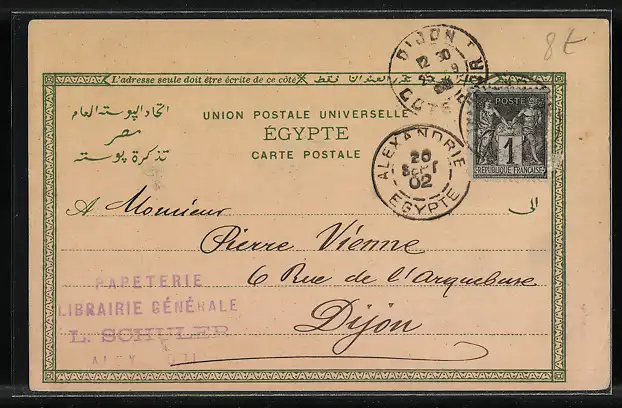 8€
L'adresse seule doit être écrite de ce côté
اتحاد البوستة العام
مصر
تذكرة بوستة
UNION POSTALE UNIVERSELLE
ÉGYPTE
CARTE POSTALE
DIJON
12 30
COTE
POSTE
1
REPUBLIQUE FRANÇAISE
ALEXANDRIE
20
SEPT
02
EGYPTE
A Monsieur
الى
Pierre Vienne
6 Rue de l'Arquebuse
Dijon
PAPETERIE
LIBRAIRIE GÉNÉRALE
L. SCHULER